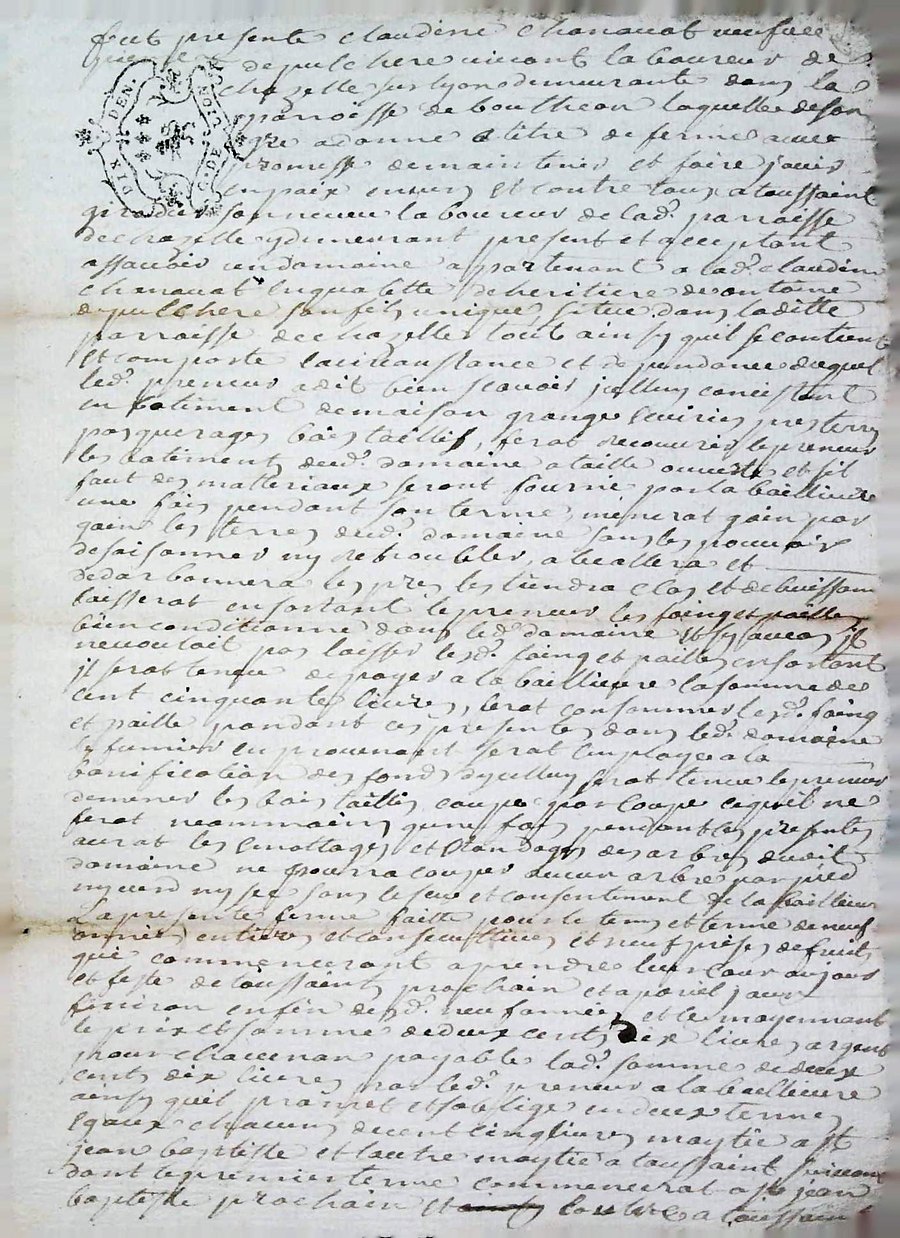 fut presente claudine chanavat veufve
de pulchere vivant laboureur de
chazelle sur lyon demeurante dans la
parroisse de boutheon laquelle de son
gre a donne a titre de ferme avec
promesse de maintenir et faire jouir
en paix envers et contre tous a toussaint
girardier son neveu laboureur de lad. parroisse
de chazelle y demeurant present et acceptant
assavoir un domaine appartenant a lad. claudine
chanavat en qualitte d'heritiere de
de pulchere son fils unique situe dans laditte
parroisse de chazelles tout ainsy quil se contient
et comporte circonstance et dependance duquel
led. preneur a dit bien scavoir jcelluy consistant
en batiment de maison grange ecuries pres terres
pasquerages bois taillis, ferat recouvrir le preneur
les batiments dud. domaine a taille ouverte et sil
faut des materiaux seront fourni par la bailleure
une fois pendant son terme, menerat gain par
gain les terres dud. domaine sans les pouvoir
desaisonner ny retroubler, a beallera et
dedarbonnera les pres les tiendra clos et de buissons
laisserat en sortant le preneur les foing et pailles
bien conditionne dans led. domaine et sy jl
ne vouloit pas laisser lesd. foing et pailles en sortant
jl serat tenu de payer a la bailleure la somme de
cent cinquante livres, ferat consommer lesd. foing
et paille pendant ces presentes dans led. domaine
le fumier en provenant serat employe a la
bonification des fonds dycelluy serat tenu le preneur
de mener les bois taillis coupe par coupe ce quil ne
ferat neammoins qune fois pendant les presentes
aurat les emottages et elandages des arbres dudit
domaine ne pourra couper aucun arbre par pied
ny verd ny sec sans le sceu et consentement de la bailleure
La presente ferme faitte pour le tems et terme de neuf
années entieres et consecutives et neuf prises de fruits
que commenceront a prendre leur cour au jour
et feste de toussaint prochain et a pareil jour
finiron enfin desd. neuf années et le moyennant
le prix et somme de deux cents dix livres argent
pour chacun an payable lad. somme de deux
cents dix livres par led. preneur a la bailleure
ainsy quil promet et soblige en deux termes
egaux chacun de cent cinq livres moytie a st
jean baptiste et lautre moytie a toussaint suivant
dont le premier terme commencerat a st jean
baptiste prochain et lautre a toussaint
DIX DEN.
G. DE LYON